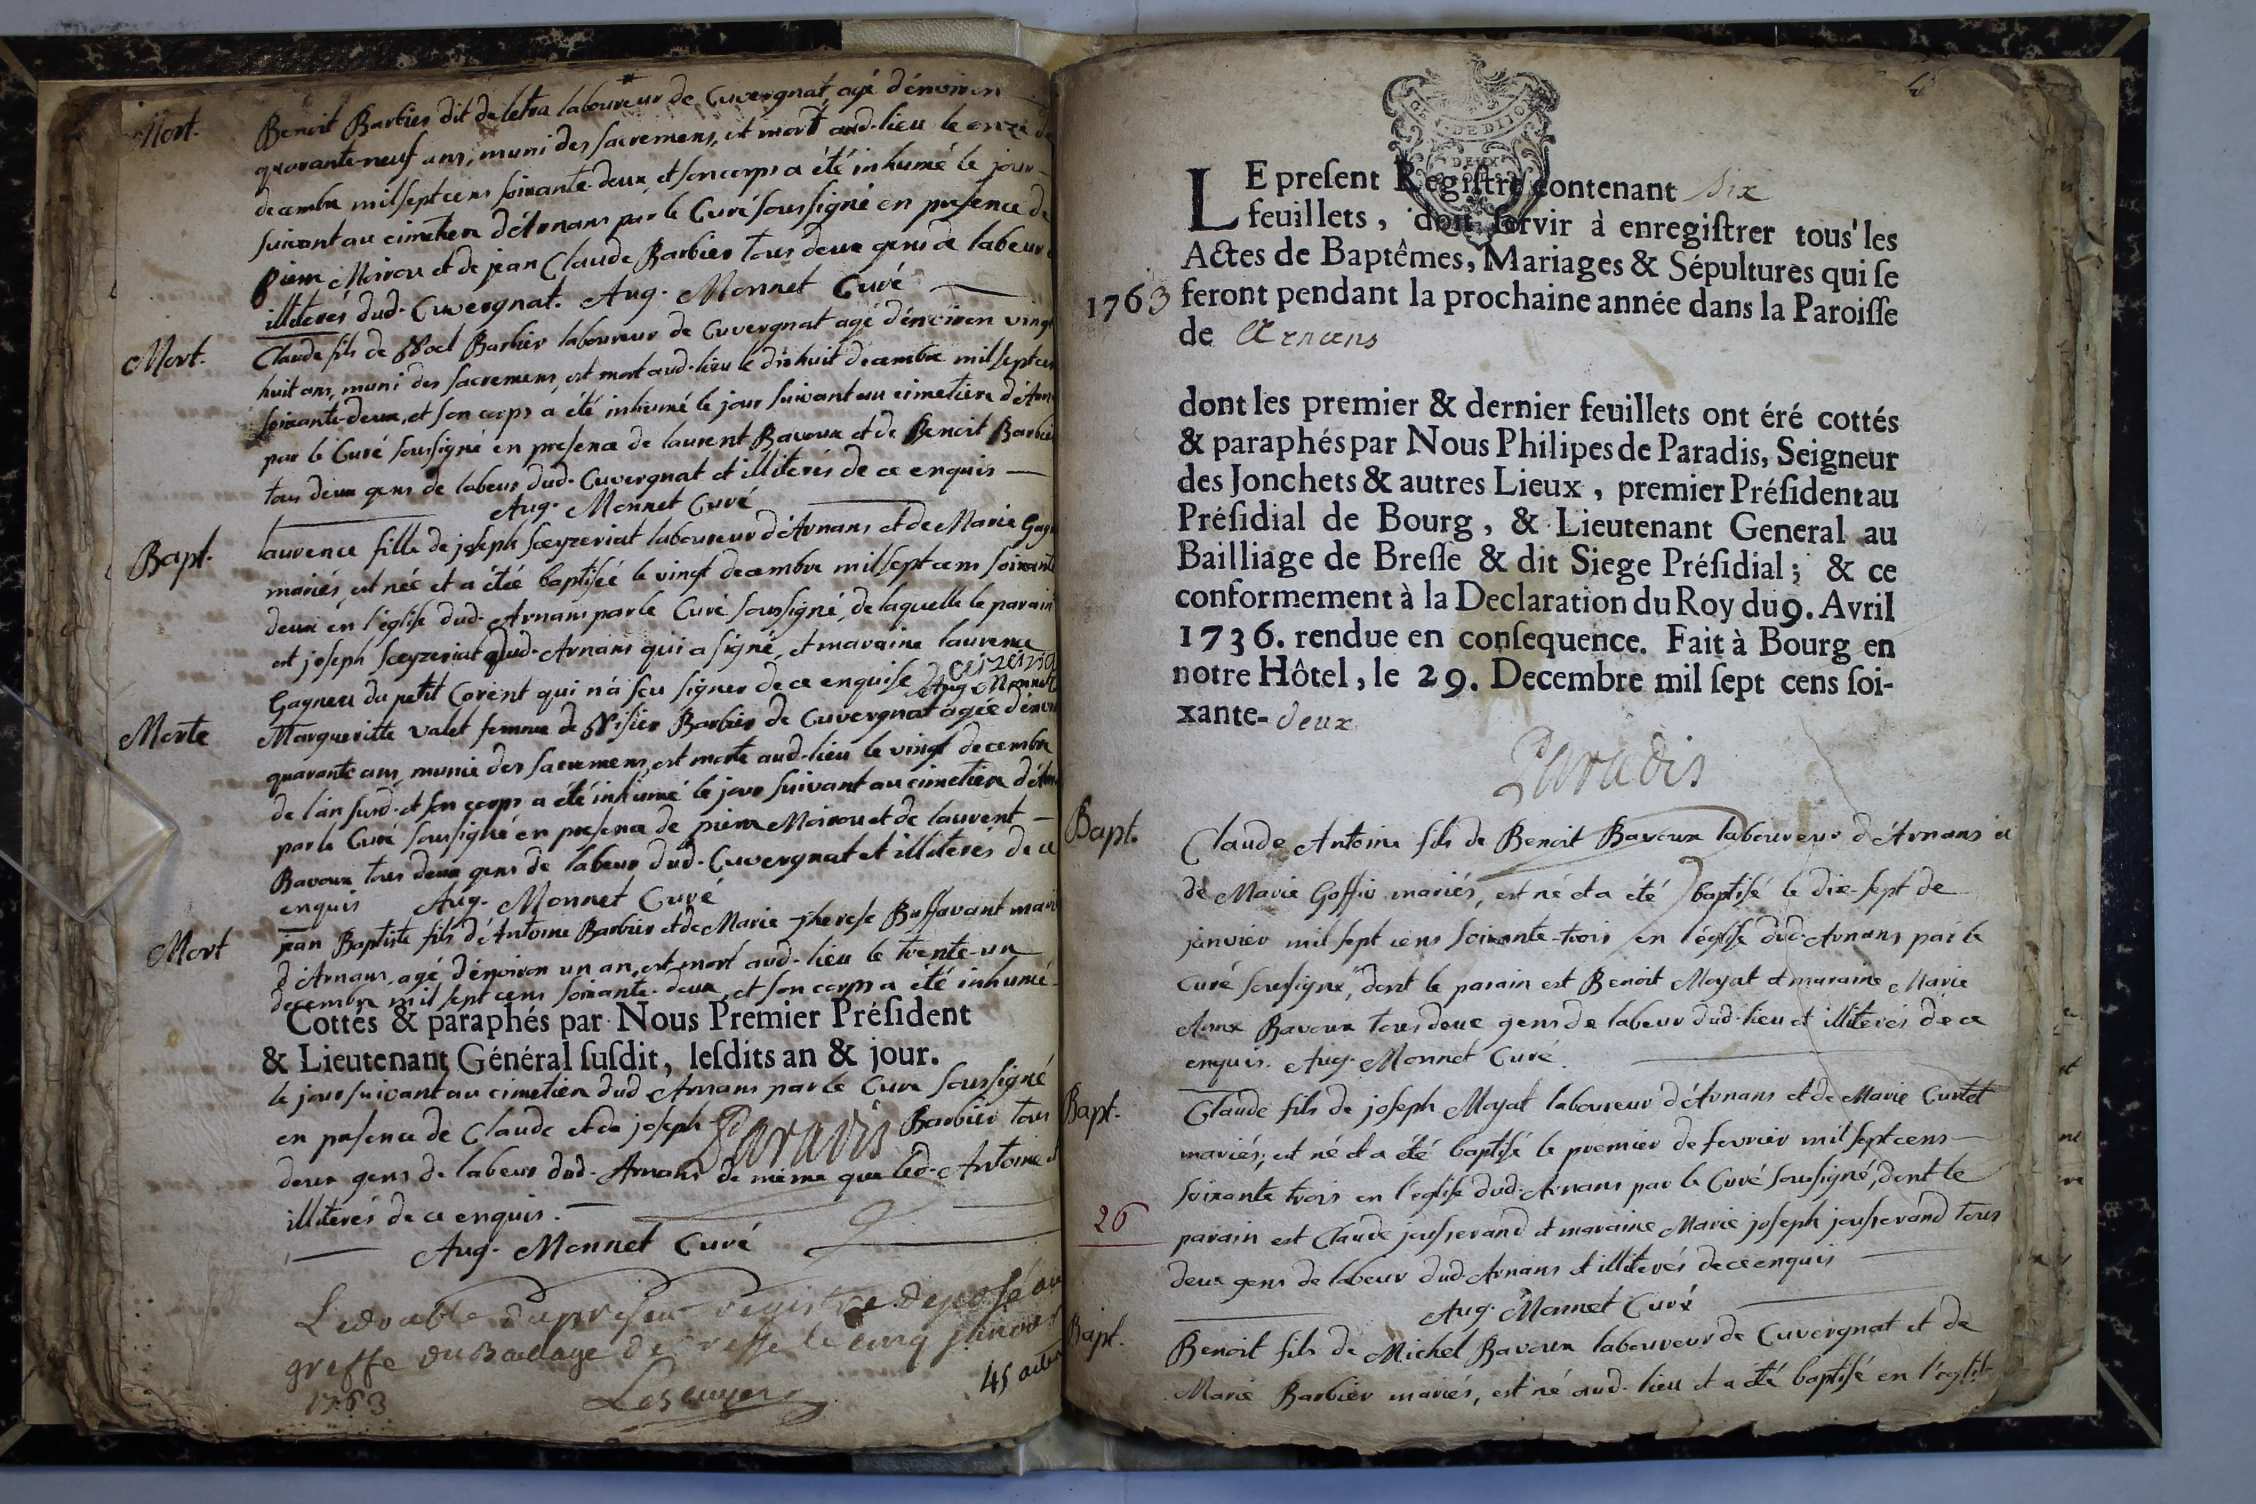 Mort.
Benoit Barbier dit deletra laboureur de Cuvergnat, agé d'environ
quarante-neuf ans, muni des sacremens, est mort aud-lieu le onze de
decembre mil sept cens soixante-deux, et son corps a été inhumé le jour
suivant au cimetiere d'Arnans par le Curé soussigné en presence de
pierre Moirou et de jean Claude Barbier tous deux gens de labeur
illiterés dud-Cuvergnat. Aug. Monnet Curé
Mort.
Claude fils de Noel Barbier laboureur de Cuvergnat agé d'environ vingt
huit ans, muni des sacremens, est mort aud-lieu le dix huit decembre mil sept cens
soixante-deux, et son corps a été inhumé le jour suivant au cimetiere d'Arn
par le Curé soussigné en presence de laurent Bavoux et de Benoit Barbier
tous deux gens de labeur dud-Cuvergnat et illiterés de ce enquis
Aug. Monnet Curé
Bapt.
laurence fille de joseph Sceyzeriat laboureur d'Arnans et de Marie Gagn
mariés, est née et a étée baptisée le vingt decembre mil sept cens soixante
deux en l'église dud-Arnans par le Curé soussigné, de laquelle le parain
est joseph Sceyzeriat dud-Arnans qui a signé, et maraine laurence
Gagneu du petit Corent qui n'a sçu signer de ce enquise
Aug. Monnet
Morte
Margueritte valet femme de Barbier de Cuvergnat agée d'envi
quarante ans, munie des sacremens, est morte aud-lieu le vingt decembre
de l'an susd-et son corps a été inhumé le jour suivant au cimetiere d'Arn
par le Curé soussigné en presence de pierre Moirou et de laurent
Bavoux tous deux gens de labeur dud-Cuvergnat et illiterés de ce
enquis Aug. Monnet Curé
Mort
jean Baptiste fils d'Antoine Barbier et de Marie Therese Buffavant mari
d'Arnans, agé d'environ un an, est mort aud-lieu le trente-un
decembre mil sept cens soixante-deux, et son corps a été inhumé
Cottés & paraphés par Nous Premier Préſident
& Lieutenant Général ſuſdit, leſdits an & jour.
le jour suivant au cimetiere dud Arnans par le Curé soussigné
en presence de Claude et de joseph Barbier tous
Paradis
deux gens de labeur dud-Arnans de même que led-Antoine et
illiterés de ce enquis.
Aug. Monnet Curé
Le double du present registre deposé au
greffe du Bailage de Bresse le cinq janvier
1763
Lescuyer
45 actes
LE preſent Regiſtre contenant six
feuillets, doit ſervir à enregiſtrer tous les
Actes de Baptêmes, Mariages & Sépultures qui ſe
1763
feront pendant la prochaine année dans la Paroiſſe
de Arnans
dont les premier & dernier feuillets ont éré cottés
& paraphés par Nous Philipes de Paradis, Seigneur
des Jonchets & autres Lieux, premier Préſident au
Préſidial de Bourg, & Lieutenant General au
Bailliage de Breſſe & dit Siege Préſidial; & ce
conformement à la Declaration du Roy du 9. Avril
1736. rendue en conſequence. Fait à Bourg en
notre Hôtel, le 29. Decembre mil ſept cens ſoi-
xante-deux
Paradis
Bapt.
Claude Antoine fils de Benoit Bavoux laboureur d'Arnans et
de Marie Goffio mariés, est né et a été baptisé le dix-sept de
janvier mil sept cens soixante-trois en l'église dud-Arnans par le
Curé soussigné, dont le parain est Benoit Moyat et maraine Marie
Anne Bavoux tous deux gens de labeur dud-lieu et illiterés de ce
enquis. Aug. Monnet Curé.
Bapt.
Claude fils de joseph Moyat laboureur d'Arnans et de Marie Curtet
mariés, est né et a été baptisé le premier de fevrier mil sept cens
soixante trois en l'église dud-Arnans par le Curé soussigné, dont le
26
parain est Claude jousserand et maraine Marie joseph jousserand tous
deux gens de labeur dud-Arnans et illiterés de ce enquis
Aug. Monnet Curé
Bapt.
Benoit fils de Michel Bavoux laboureur de Cuvergnat et de
Marie Barbier mariés, est né aud-lieu et a été baptisé en l'église